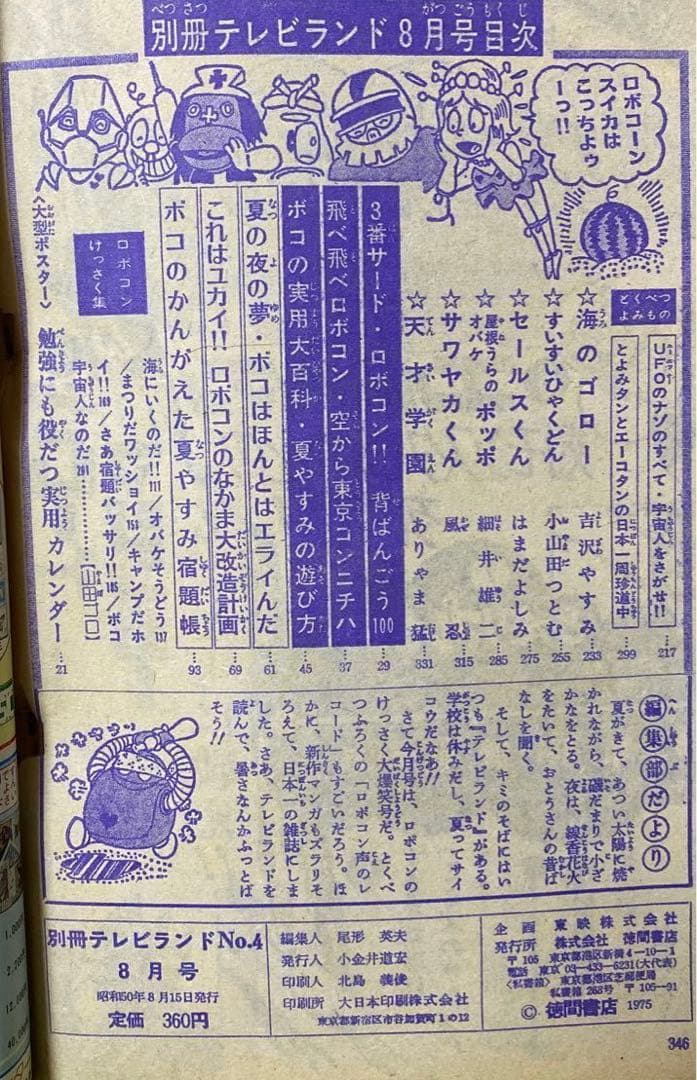 別冊テレビランド8月号目次
ロボコーン
スイカは
こっちよゥ
ーっ!!
とくべつ
よみもの
UFOのナゾのすべて・宇宙人をさがせ!! 217
とよみタンとエーコタンの日本一周珍道中 299
☆海のゴロー 吉沢やすみ 233
☆すいすいひゃくどん 小山田つとむ 255
☆セールスくん はまだよしみ 275
☆屋根うらのオバケ ポッポ 細井雄二 285
☆サワヤカくん 風忍 315
☆天才学園 ありやま猛 331
3番サード・ロボコン!! 背ばんごう100 29
飛べ飛べロボコン・空から東京コンニチハ 37
ボコの実用大百科・夏やすみの遊び方 45
夏の夜の夢・ボコはほんとはエライんだ 61
これはユカイ!! ロボコンのなかま大改造計画 69
ボコのかんがえた夏やすみ宿題帳 93
ロボコン
けっさく集
海にいくのだ!! 111/オバケそうどう137
/まつりだワッショイ151/キャンプだホ
イ!! 169/さあ宿題バッサリ!! 185/ボコ
宇宙人なのだ201…………[山田ゴロ]
〈大型ポスター〉勉強にも役だつ実用カレンダー 21
編集部だより
夏がきて、あつい太陽に焼
かれながら、磯だまりで小ざ
かなをとる。夜は、線香花火
をたいて、おとうさんの昔ば
なしを聞く。
そして、キミのそばにはい
つも『テレビランド』がある。
学校は休みだし、夏ってサイ
コウだなあ!!
さて今月号は、ロボコンの
けっさく大爆笑号だ。とくべ
つふろくの「ロボコン声のレ
コード」もすごいだろう。ほ
かに、新作マンガもズラリそ
ろえて、日本一の雑誌にしま
した。さあ、テレビランドを
読んで、暑さなんかふっとば
そう!!
別冊テレビランドNo.4
8月号
昭和50年8月15日発行
定価 360円
編集人 尾形英夫
発行人 小金井道宏
印刷人 北島義俊
印刷所 大日本印刷株式会社
東京都新宿区市谷加賀町1の12
企画 東映株式会社
発行所 株式会社 徳間書店
〒105 東京都港区新橋4-10-1
電話 東京03-433-6231(大代表)
〈私書箱〉 東京都港区芝郵便局
私書箱268号 〒105-91
© 徳間書店 1975
346